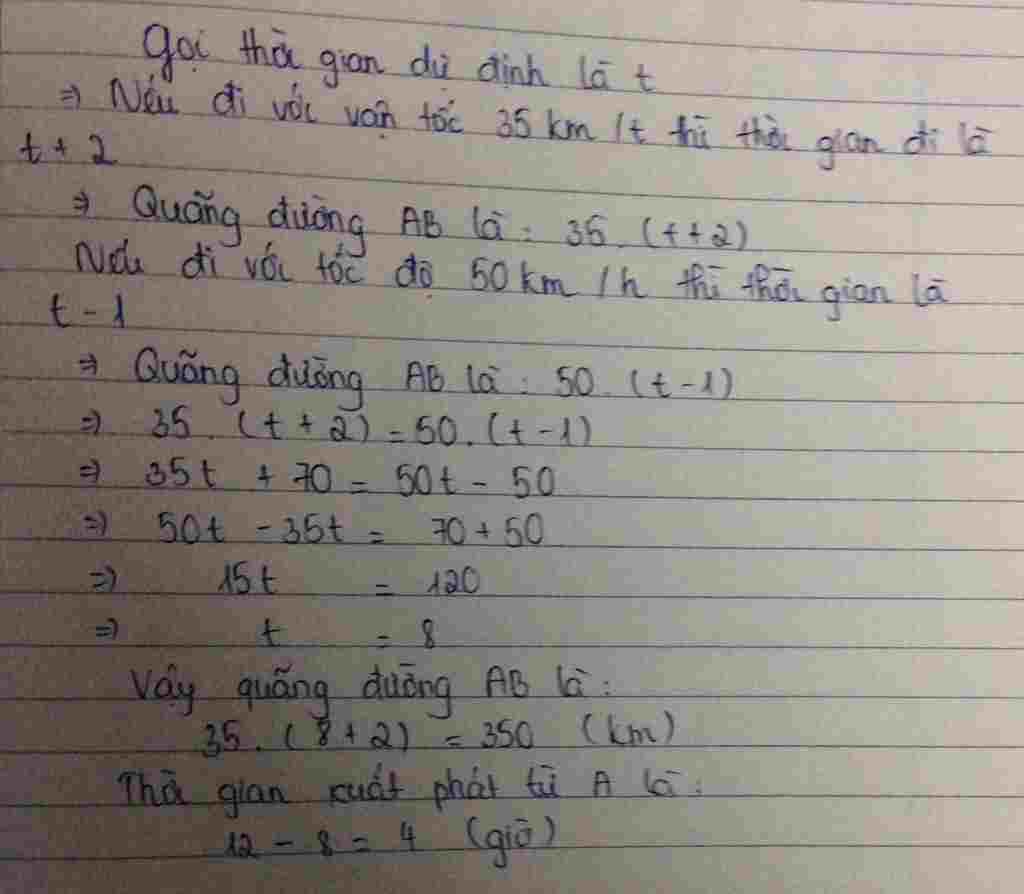 Gọi thời gian dự định là t
⇒ Nếu đi với vận tốc 35 km /t thì thời gian đi là
t + 2
⇒ Quãng đường AB là : 35 . (t+2)
Nếu đi với tốc độ 50 km /h thì thời gian là
t - 1
⇒ Quãng đường AB là : 50 . (t - 1)
⇒ 35 . (t + 2) = 50 . (t - 1)
⇒ 35t + 70 = 50t - 50
⇒ 50t - 35t = 70 + 50
⇒ 15t = 120
⇒ t = 8
Vậy quãng đường AB là :
35 . (8 + 2) = 350 (km)
Thời gian xuất phát từ A là :
12 - 8 = 4 (giờ)